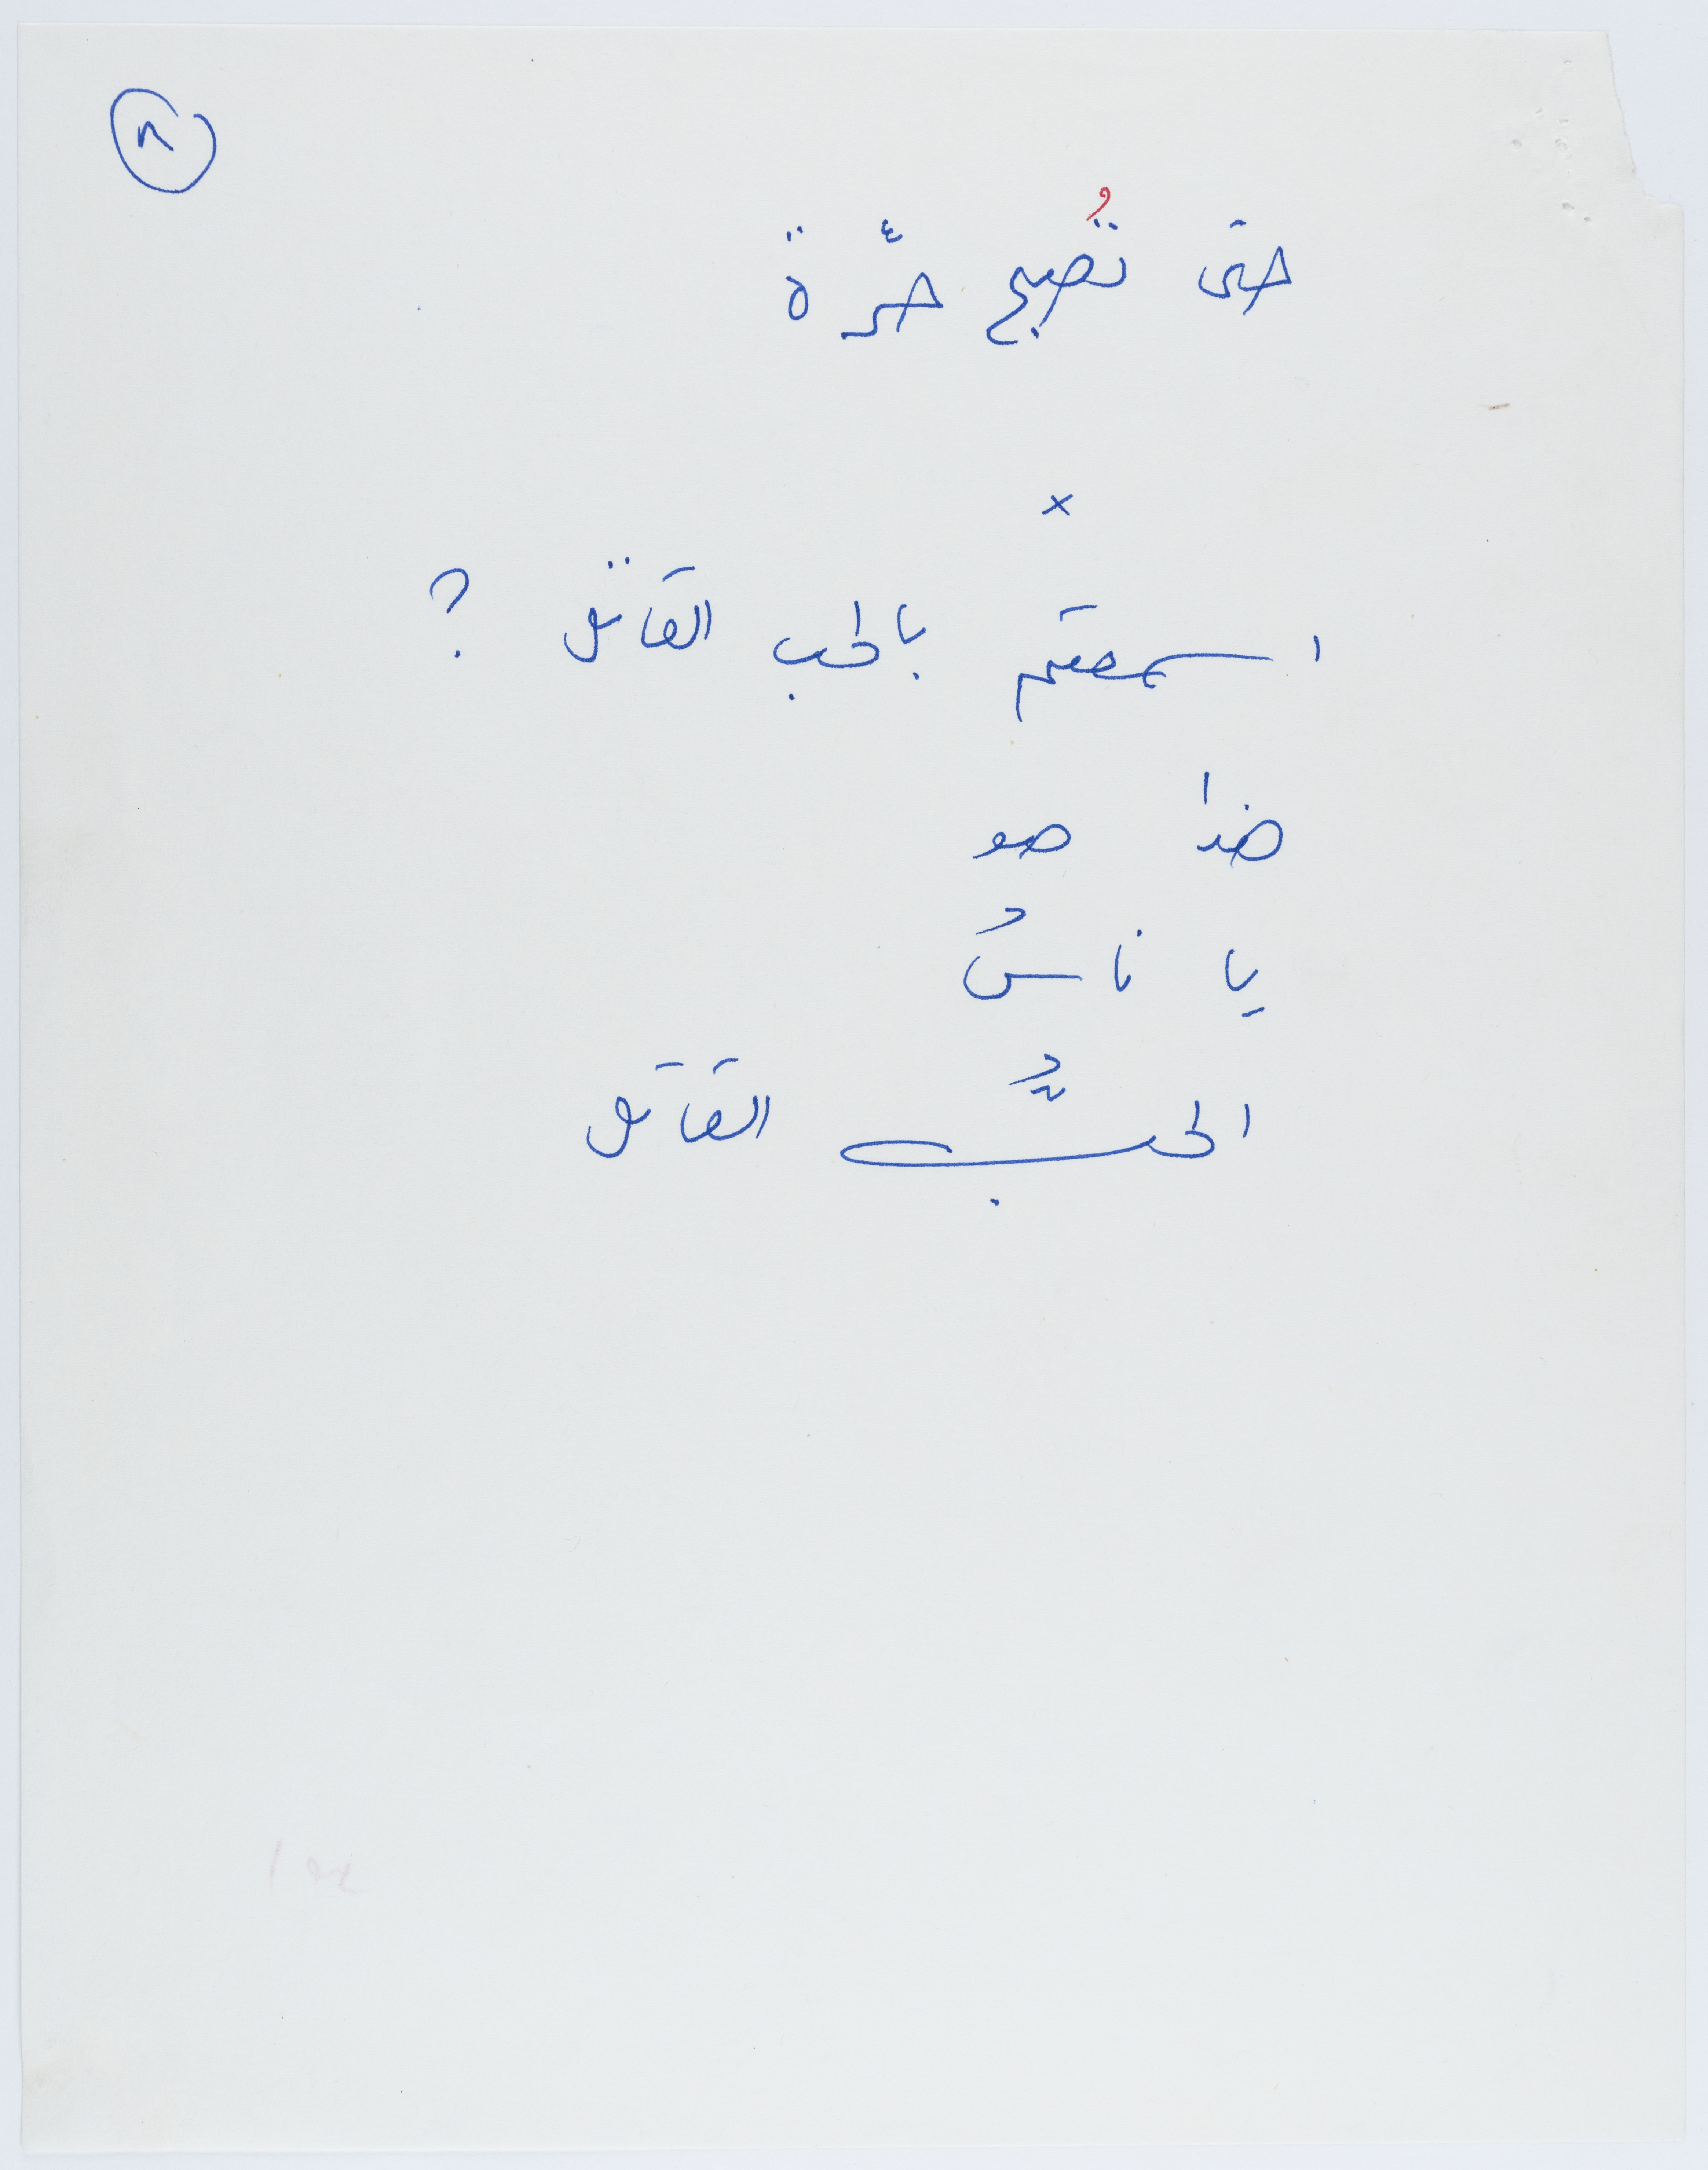 ٨
حتى تُصبح حرّة
×
أسمعتم بالحب القاتل ؟
هذا هو
يا ناسُ
الحبُّ القاتل